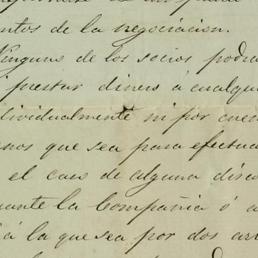 ntos de la negociacion.
Ninguno de los socios podra
prestar dinero á cualqu
dividualmente ni por cuen
nos que sea para efectua
el caso de alguna disc
uante la Compañia ó a
á la que sea por dos ar